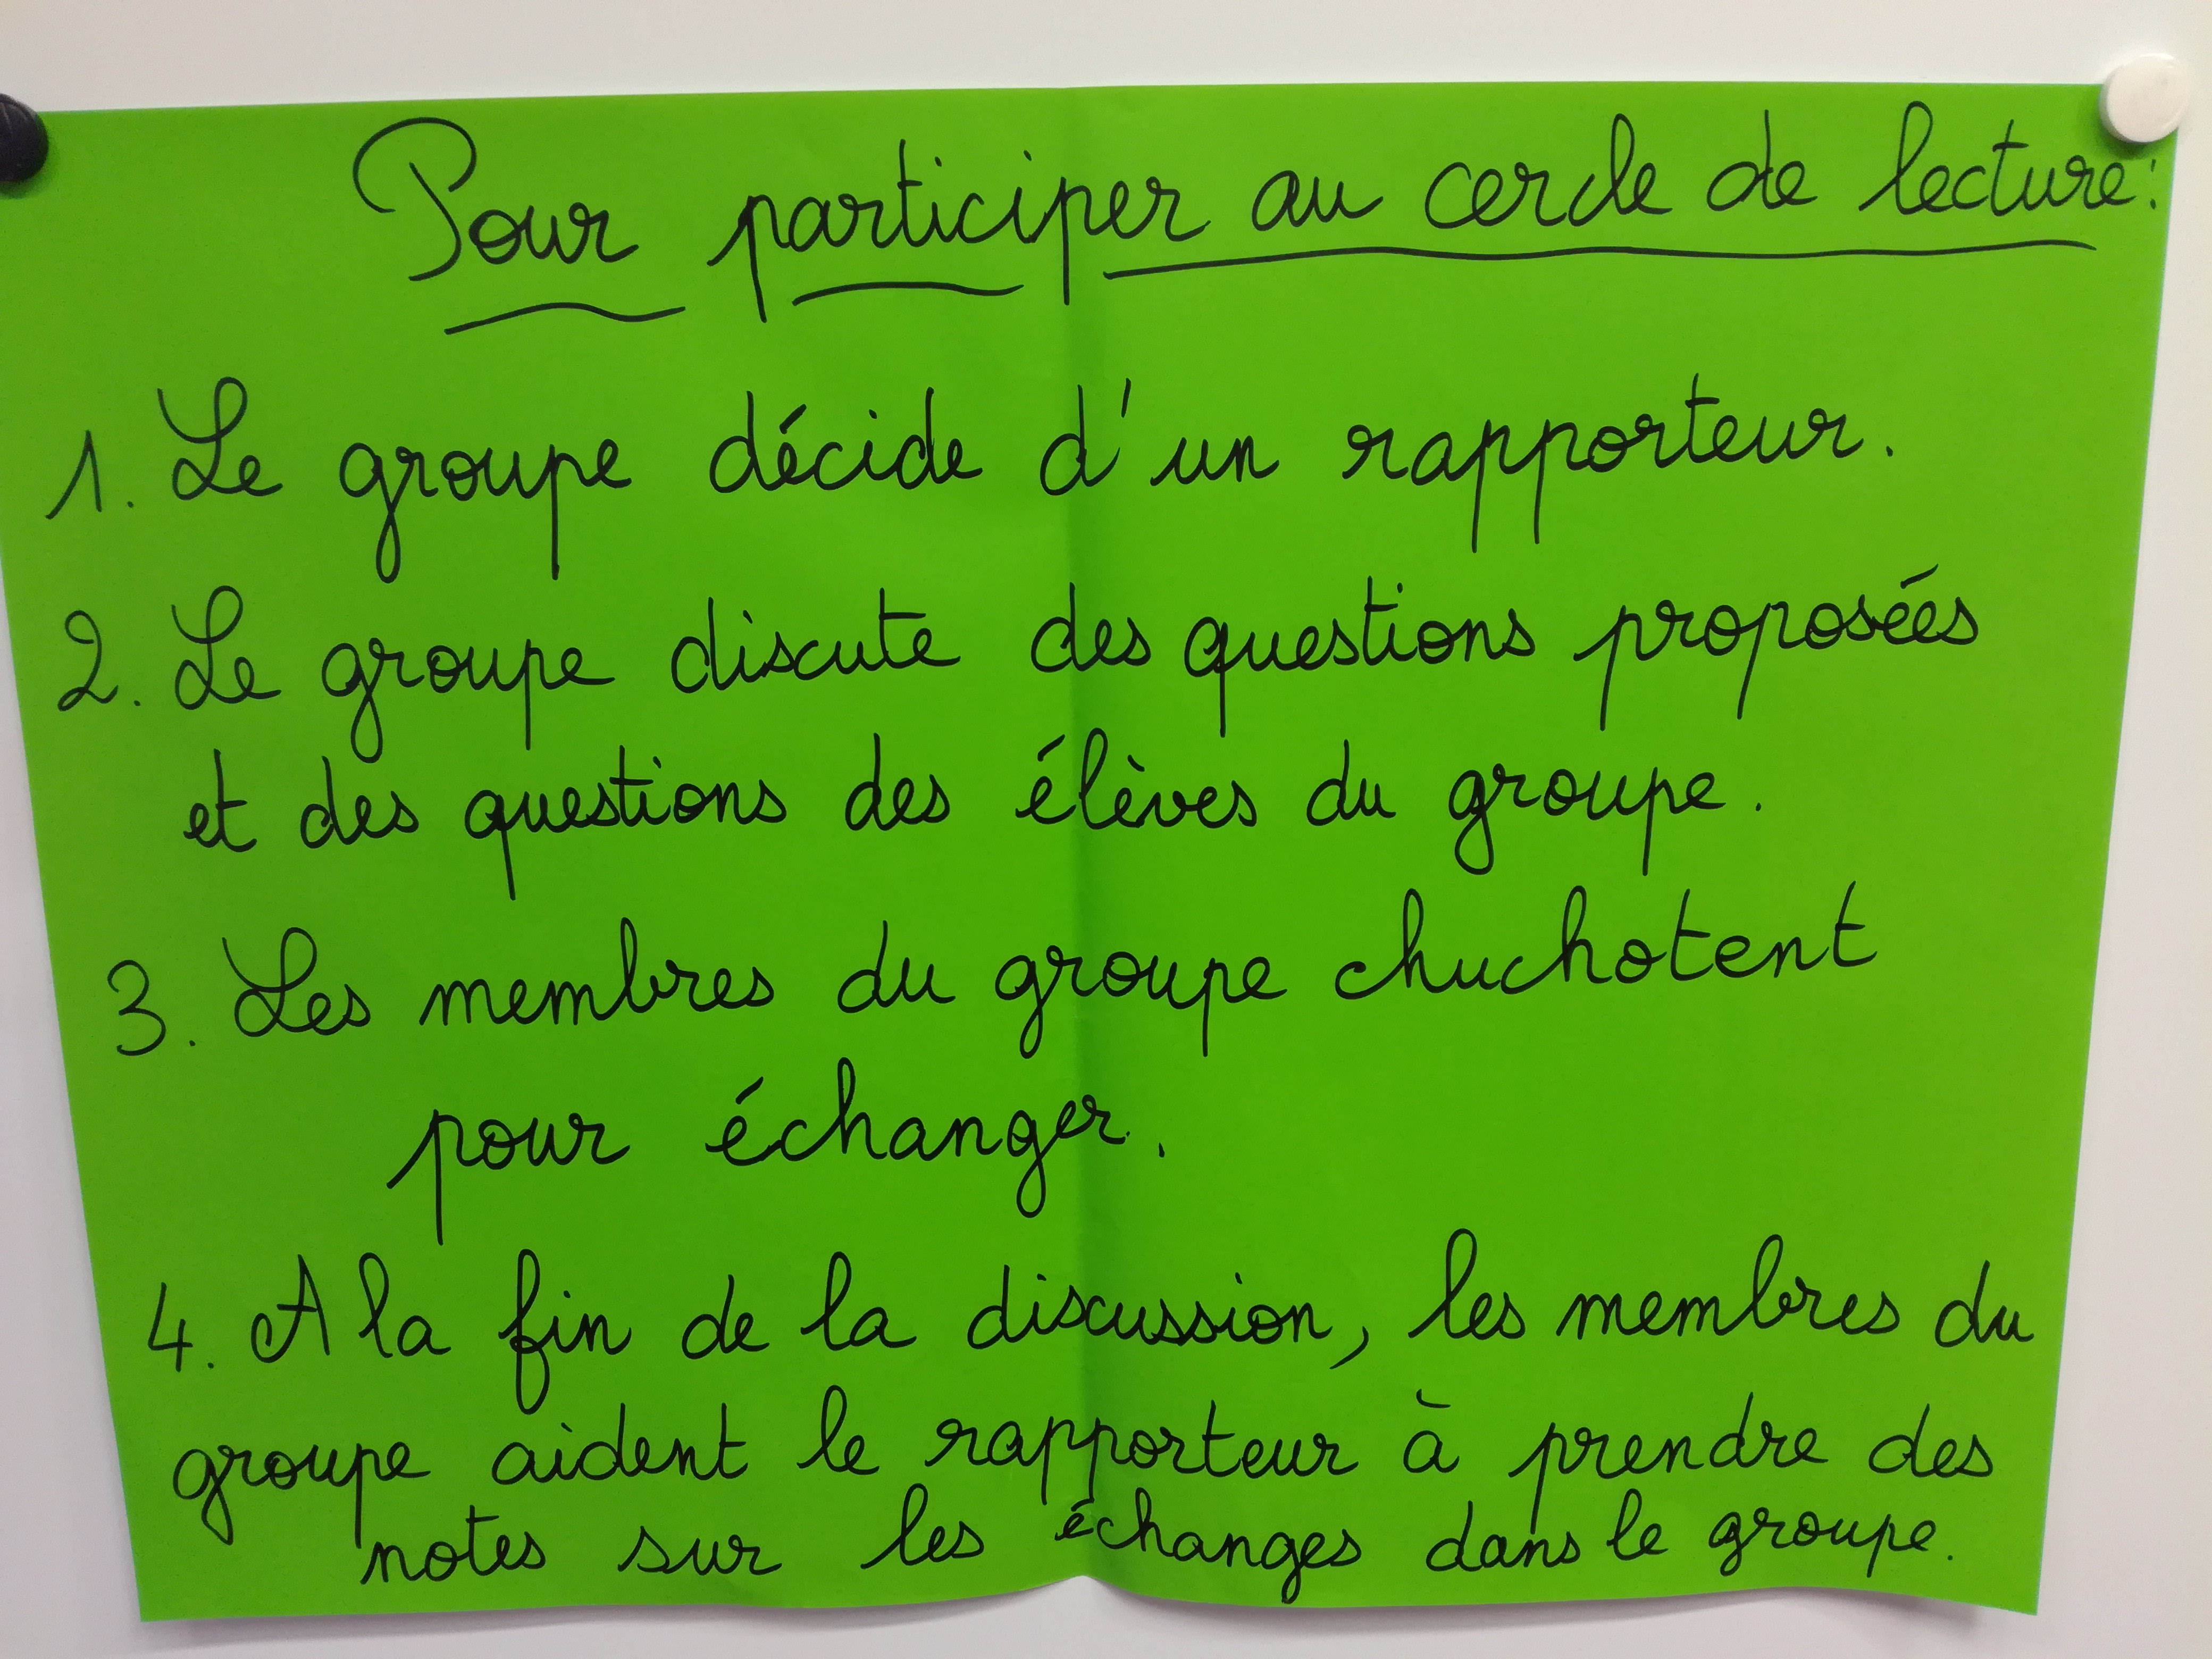 Pour participer au cercle de lecture:
1. Le groupe décide d'un rapporteur.
2. Le groupe discute des questions proposées
et des questions des élèves du groupe.
3. Les membres du groupe chuchotent
pour échanger.
4. A la fin de la discussion, les membres du
groupe aident le rapporteur à prendre des
notes sur les échanges dans le groupe.